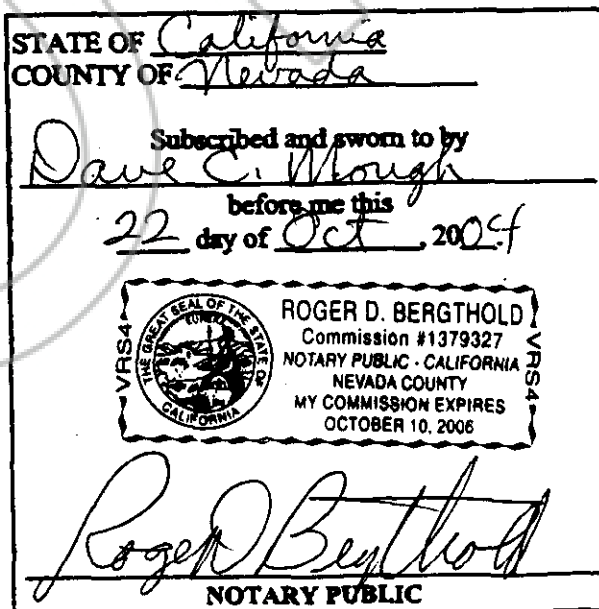 STATE OF California
COUNTY OF Nevada
Subscribed and sworn to by
Dave C. Mough
before me this
22 day of Oct, 2004
VRS4
THE GREAT SEAL OF THE STATE OF CALIFORNIA
EUREKA
ROGER D. BERGTHOLD
Commission #1379327
NOTARY PUBLIC - CALIFORNIA
NEVADA COUNTY
MY COMMISSION EXPIRES
OCTOBER 10, 2006
VRS4
Roger D Bergthold
NOTARY PUBLIC